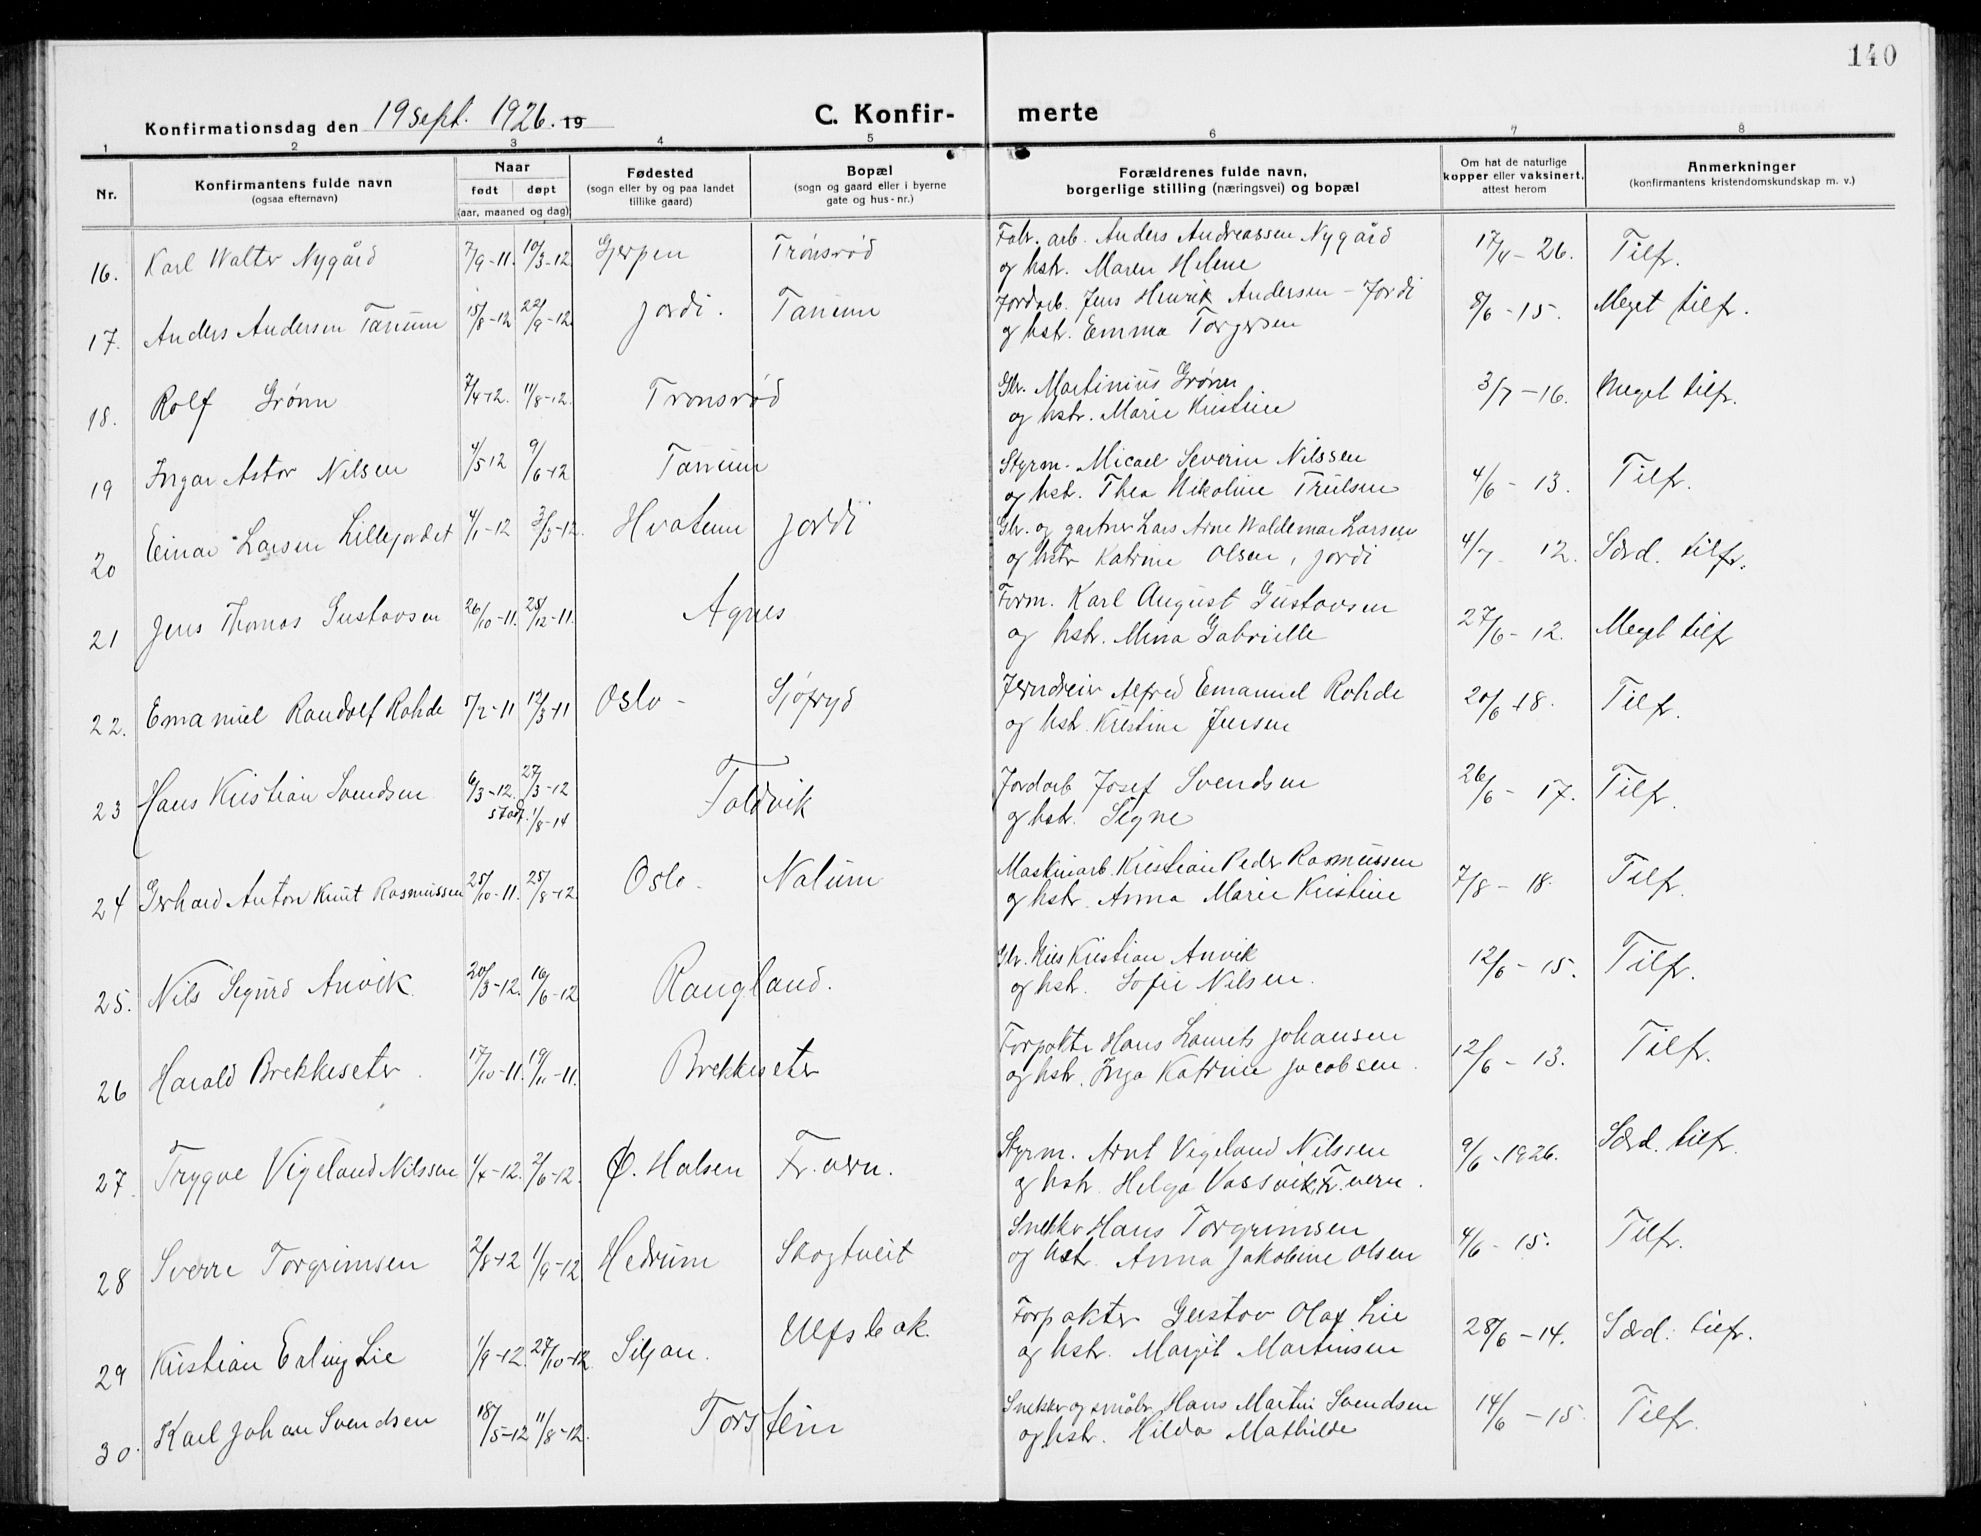 140
Konfirmationsdag den 19 sept. 1926. 19
C. Konfir- merte
1 2 3 4 5 6 7 8
Nr.
Konfirmantens fulde navn
(ogsaa efternavn)
Naar
født døpt
(aar, maaned og dag)
Fødested
(sogn eller by og paa landet
tillike gaard)
Bopæl
(sogn og gaard eller i byerne
gate og hus-nr.)
Forældrenes fulde navn,
borgerlige stilling (næringsvei) og bopæl
Om hat de naturlige
kopper eller vaksinert,
attest herom
Anmerkninger
(konfirmantens kristendomskundskap m. v.)
16. Karl Walter Nygård 7/9-11. 10/3-12 Gjerpen Trønsrød Fabr. arb. Anders Andreassen Nygård 17/4-26. Tilfr.
og hstr. Maren Helene
17. Anders Andersen Tanum 15/8-12 22/9-12 Jordi. Tanum Jordarb. Jens Henrik Andersen - Jordi 8/6-15. Meget tilfr.
og hstr. Emma Torgersen
18. Rolf Grønn 7/4-12. 11/8-12. Tronsrød Gbr. Martinius Grønn 3/7-16. Meget tilfr.
og hstr. Marie Kristine
19 Ingar Astor Nilsen 4/5 12 9/6-12 Tanum Styrm. Micael Severin Nilssen 4/6-13. Tilfr.
og hstr. Thea Nikoline Trulsen
20 Einar Larsen Lillejordet 4/1-12 3/3-12. Hvatum Jordi Gbr. og gartner Lars Arne Waldemar Larsen
og hstr Katrine Olsen, Jordi 4/7 12. Særd. tilfr.
21 Jens Thomas Gustavsen 26/10-11. 25/12-11. Agnes Form. Karl August Gustavsen 27/6-12. Meget tilfr
og hstr. Mina Gabrielle
22. Emanuel Randolf Rohde 5/2-11 12/3-11 Oslo - Sjøfryd Jerndreier Alfred Emanuel Rohde 20/6-18. Tilfr.
og hstr. Kristine Jensen
23 Hans Kristian Svendsen 6/3-12. 27/3-12 Foldvik Jordarb Josef Svendsen 26/6-17. Tilfr.
stadf. 1/8-14 og hstr. Signe
24 Gerhard Anton Knut Rasmussen 25/10-11. 25/8-12 Oslo - Nalum Maskinarb. Kristian Peder Rasmussen 7/8-18. Tilfr.
og hstr. Anna Marie Kristine
25. Nils Sigurd Anvik 20/3-12. 16/6-12 Raugland. Gbr. Nils Kristian Anvik 12/6-15. Tilfr.
og hstr. Sofie Nilsen.
26 Harald Brekkeseter 17/10-11. 19/11-11. Brekkeseter Forpakter Hans Laurits Johansen 12/6-13. Tilfr.
og hstr. Inga Katrine Jacobsen.
27 Trygve Vigeland Nilssen 1/4-12. 2/6-12. Ø. Halsen Fr.vern. Styrm. Arnt Vigeland Nilssen 9/6-1926. Særd. tilfr.
og hstr. Helga Vassvik, Fr.vern.
28 Sverre Torgrimsen 2/8-12 1/9-12 Hedrum Skogtveit Snekker Hans Torgrimsen 4/6-15. Tilfr.
og hstr. Anna Jakobine Olsen
29 Kristian Erling Lie 1/9-12. 27/10-12. Siljan. Ulfsbak. Forpakter Gustav Olaf Lie 28/6-14. Særd. tilfr.
og hstr. Margit Martinsen
30. Karl Johan Svendsen 18/5-12 11/8-12. Torstein Snekker og småbr. Hans Martin Svendsen 14/6-15. Tilfr.
og hstr. Hilda Mathilde